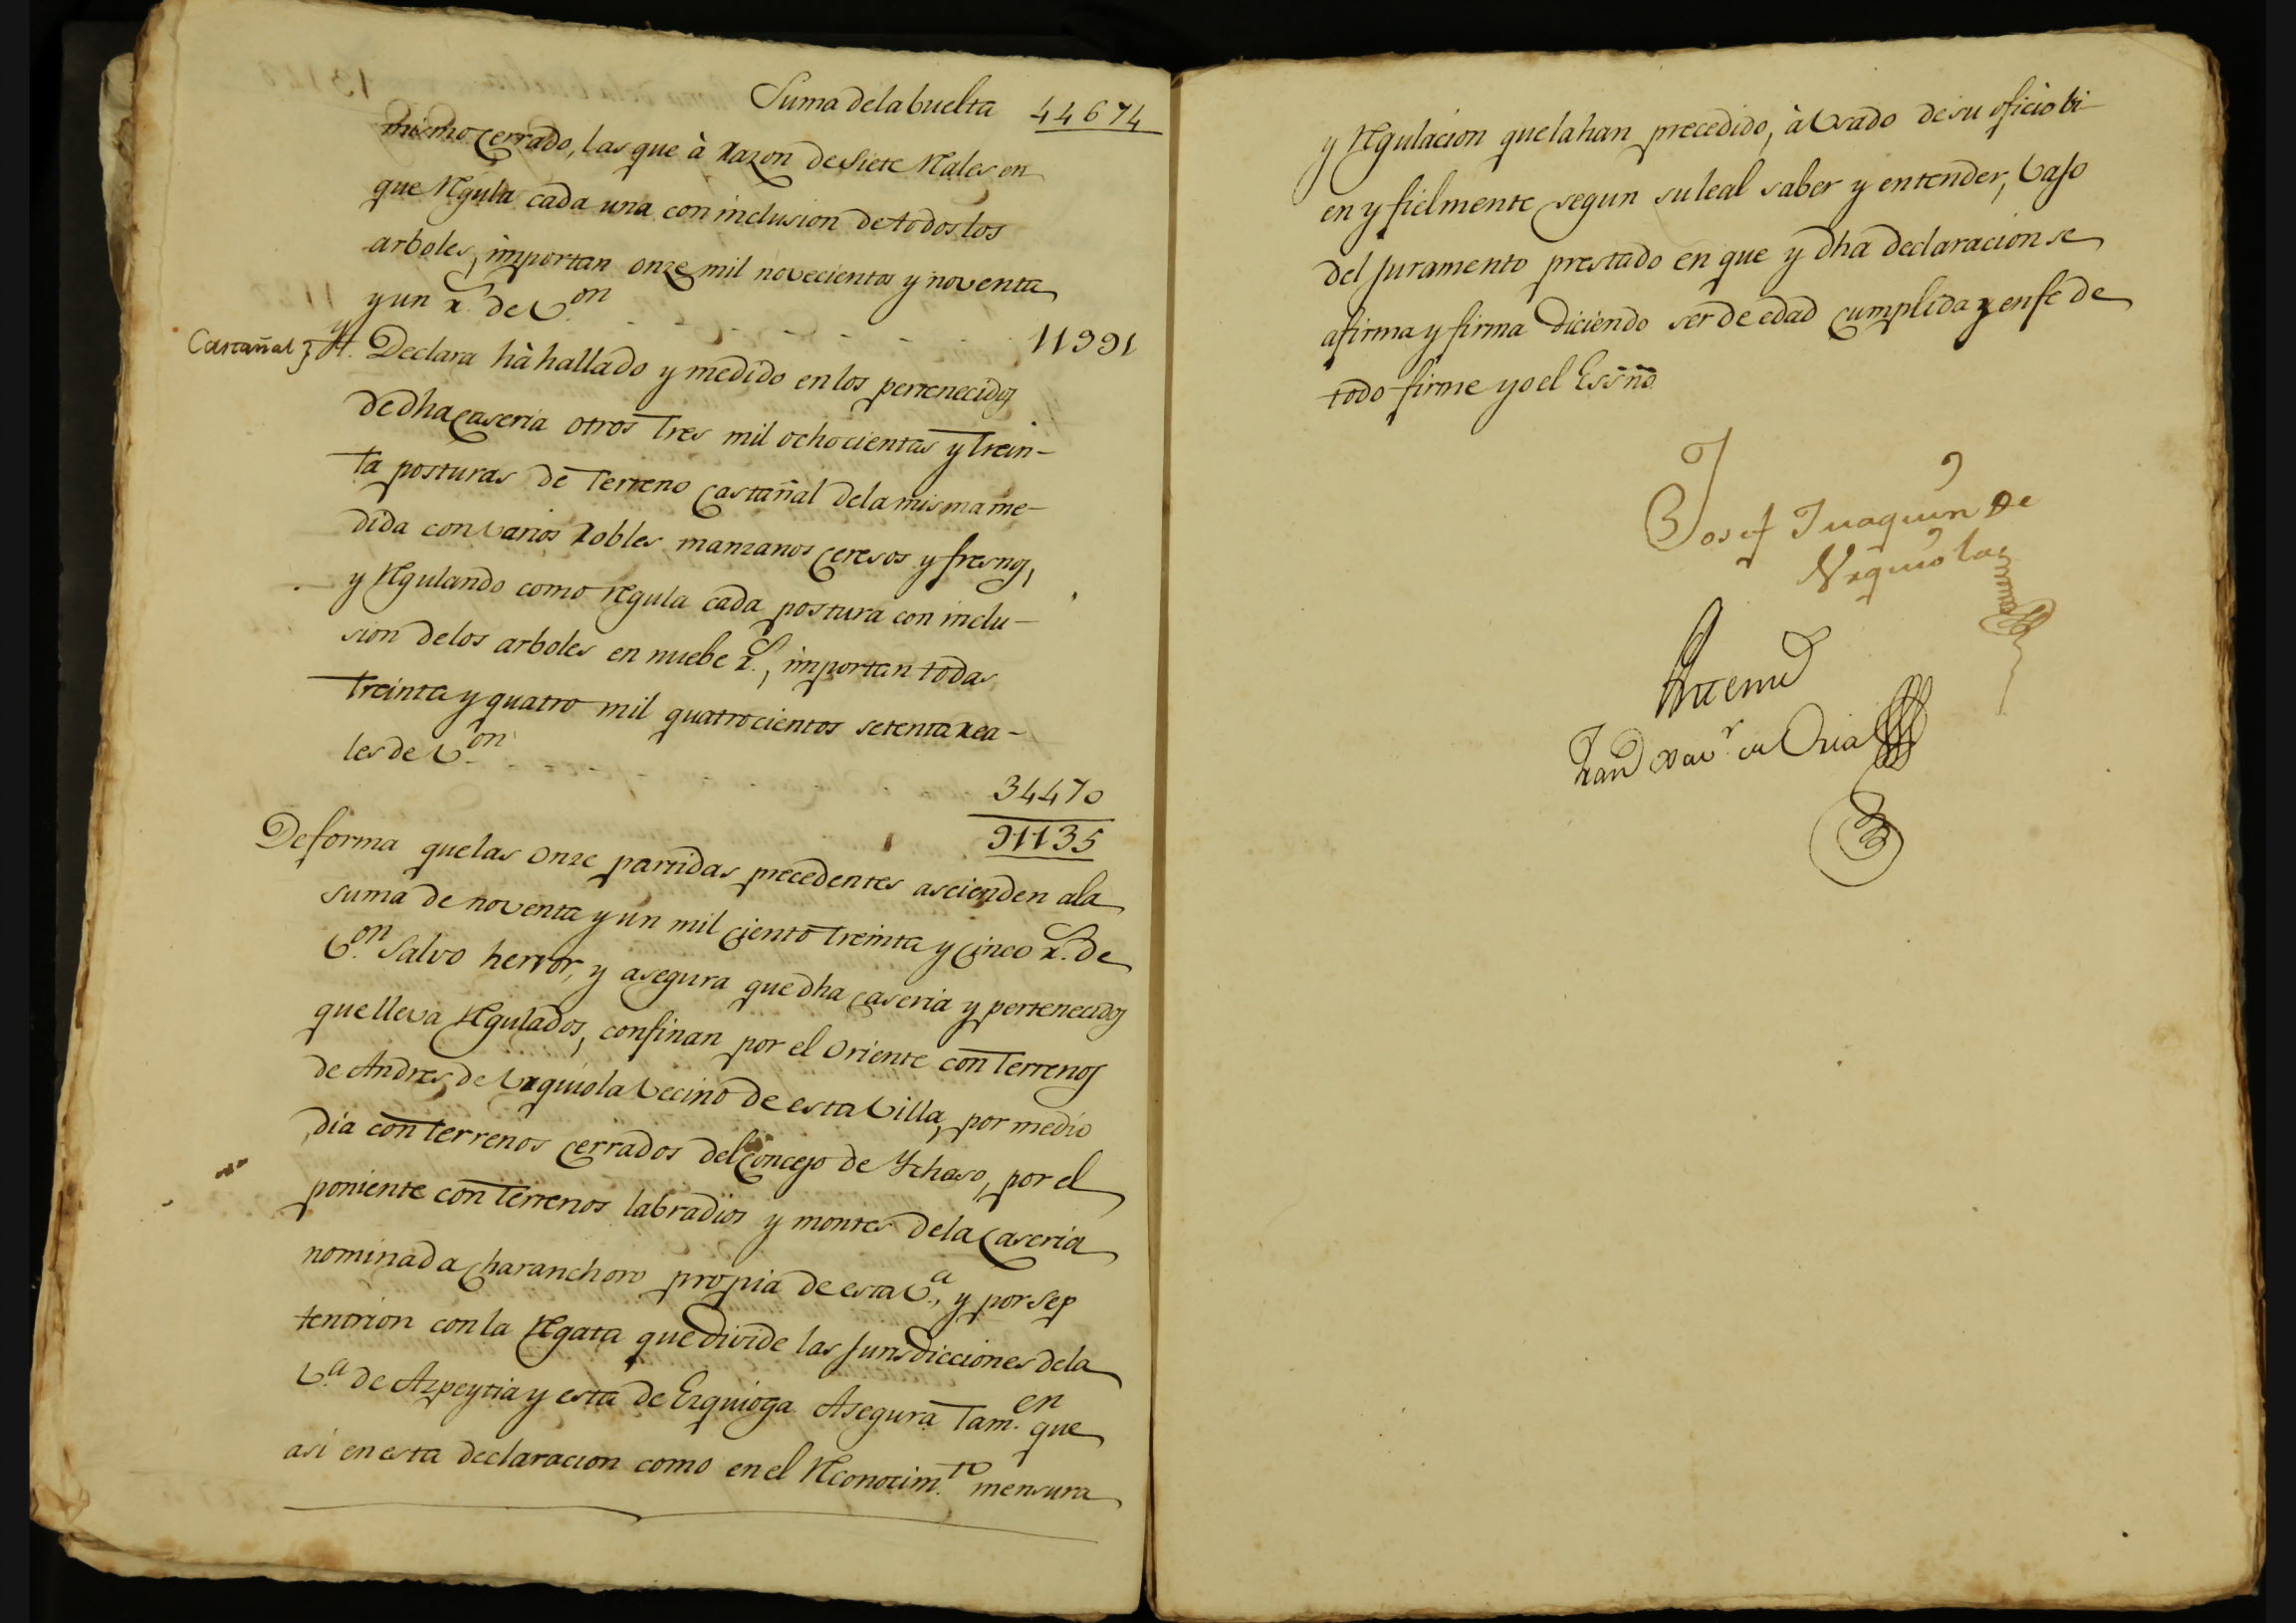 Suma de la buelta 44674
mismo cerrado, las que à razon de siete Reales en
que Regula cada una con inclusion de todos los
arboles, importan onze mil novecientos y noventa
y un r.s de V.on - - - - - - 11991
Castañal Yt. Declara hà hallado y medido en los pertenecidos
de dha caseria otros tres mil ochocientas y trein-
ta posturas de terreno castañal de la misma me-
dida con varios Robles manzanos ceresos y fresnos,
y Regulando como regula cada postura con inclu-
sion de los arboles en nuebe r.s, importan todas
treinta y quatro mil quatrocientos setenta rea-
les de V.on - - - - - 34470
91135
De forma que las onze partidas precedentes ascienden ala
suma de noventa y un mil ciento treinta y cinco r.s de
V.on salvo herror, y asegura que dha caseria y pertenecidos
que lleva Regulados, confinan por el oriente con terrenos
de Andres de Urquiola Vecino de esta Villa, por medio
dia con terrenos cerrados del concejo de Ychaso, por el
poniente con terrenos labradios y montes de la caseria
nominada charanchoro propia de esta V.a, y por sep
tentrion con la Regata que divide las Jurisdicciones de la
V.a de Azpeytia y esta de Ezquioga Asegura tam.en que
asi en esta declaracion como en el Reconocim.to mensura
y Regulacion que la han precedido, à Usado de su oficio bi-
en y fielmente segun su leal saber y entender, Vaso
del Juramento prestado en que y dha declaracion se
afirma y firma diciendo ser de edad cumplida y en fe de
todo firme yo el Essño
Josef Juaquin de
Urquiola
Antemi
Fran.co Xav.r de Oria